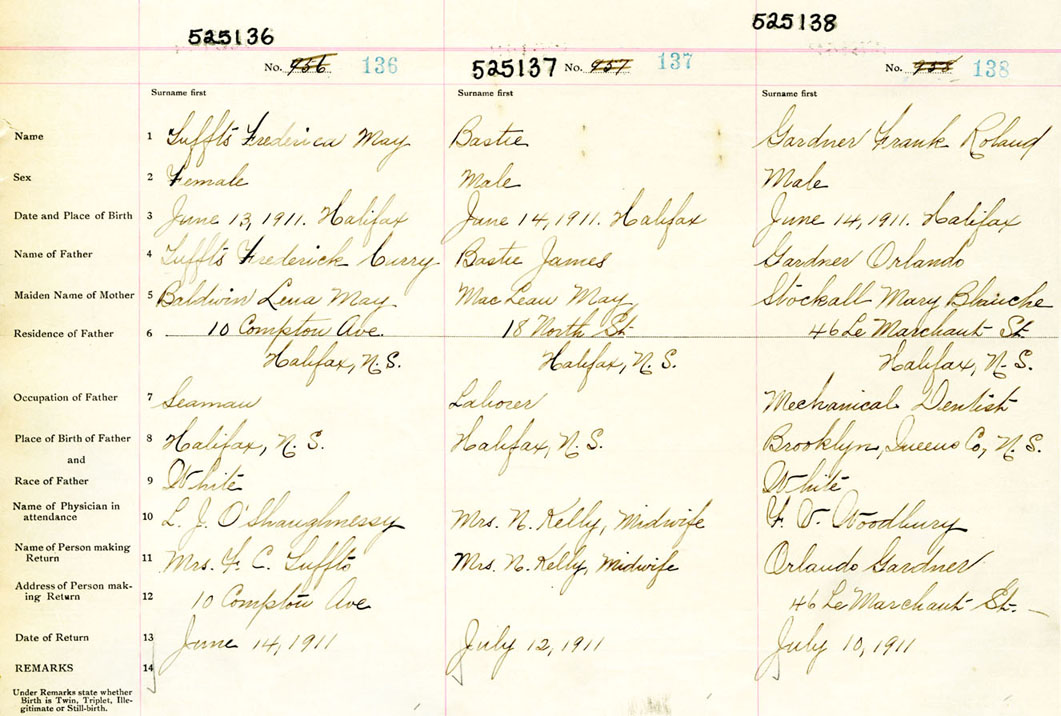 525136 525138
No. 956 136 525137 No. 957 137 No. 958 138
Surname first Surname first Surname first
Name 1 Tuffts Frederica May Bastie Gardner Frank Roland
Sex 2 Female Male Male
Date and Place of Birth 3 June 13, 1911. Halifax June 14, 1911. Halifax June 14, 1911. Halifax
Name of Father 4 Tuffts Frederick Curry Bastie James Gardner Orlando
Maiden Name of Mother 5 Baldwin Lena May MacLean May Stockall Mary Blanche
Residence of Father 6 10 Compton Ave. 18 North St. 46 Le Marchant St.
Halifax, N.S. Halifax, N.S. Halifax, N.S.
Occupation of Father 7 Seaman Laborer Mechanical Dentist
Place of Birth of Father 8 Halifax, N.S. Halifax, N.S. Brooklyn, Queens Co, N.S.
and
Race of Father 9 White White
Name of Physician in
attendance 10 L. J. O'Shaughnessy Mrs. N. Kelly, Midwife F. V. Woodbury
Name of Person making
Return 11 Mrs. F. C. Tuffts Mrs. N. Kelly, Midwife Orlando Gardner
Address of Person mak-
ing Return 12 10 Compton Ave 46 Le Marchant St.
Date of Return 13 June 14, 1911 July 12, 1911 July 10, 1911
REMARKS 14
Under Remarks state whether
Birth is Twin, Triplet, Ille-
gitimate or Still-birth.